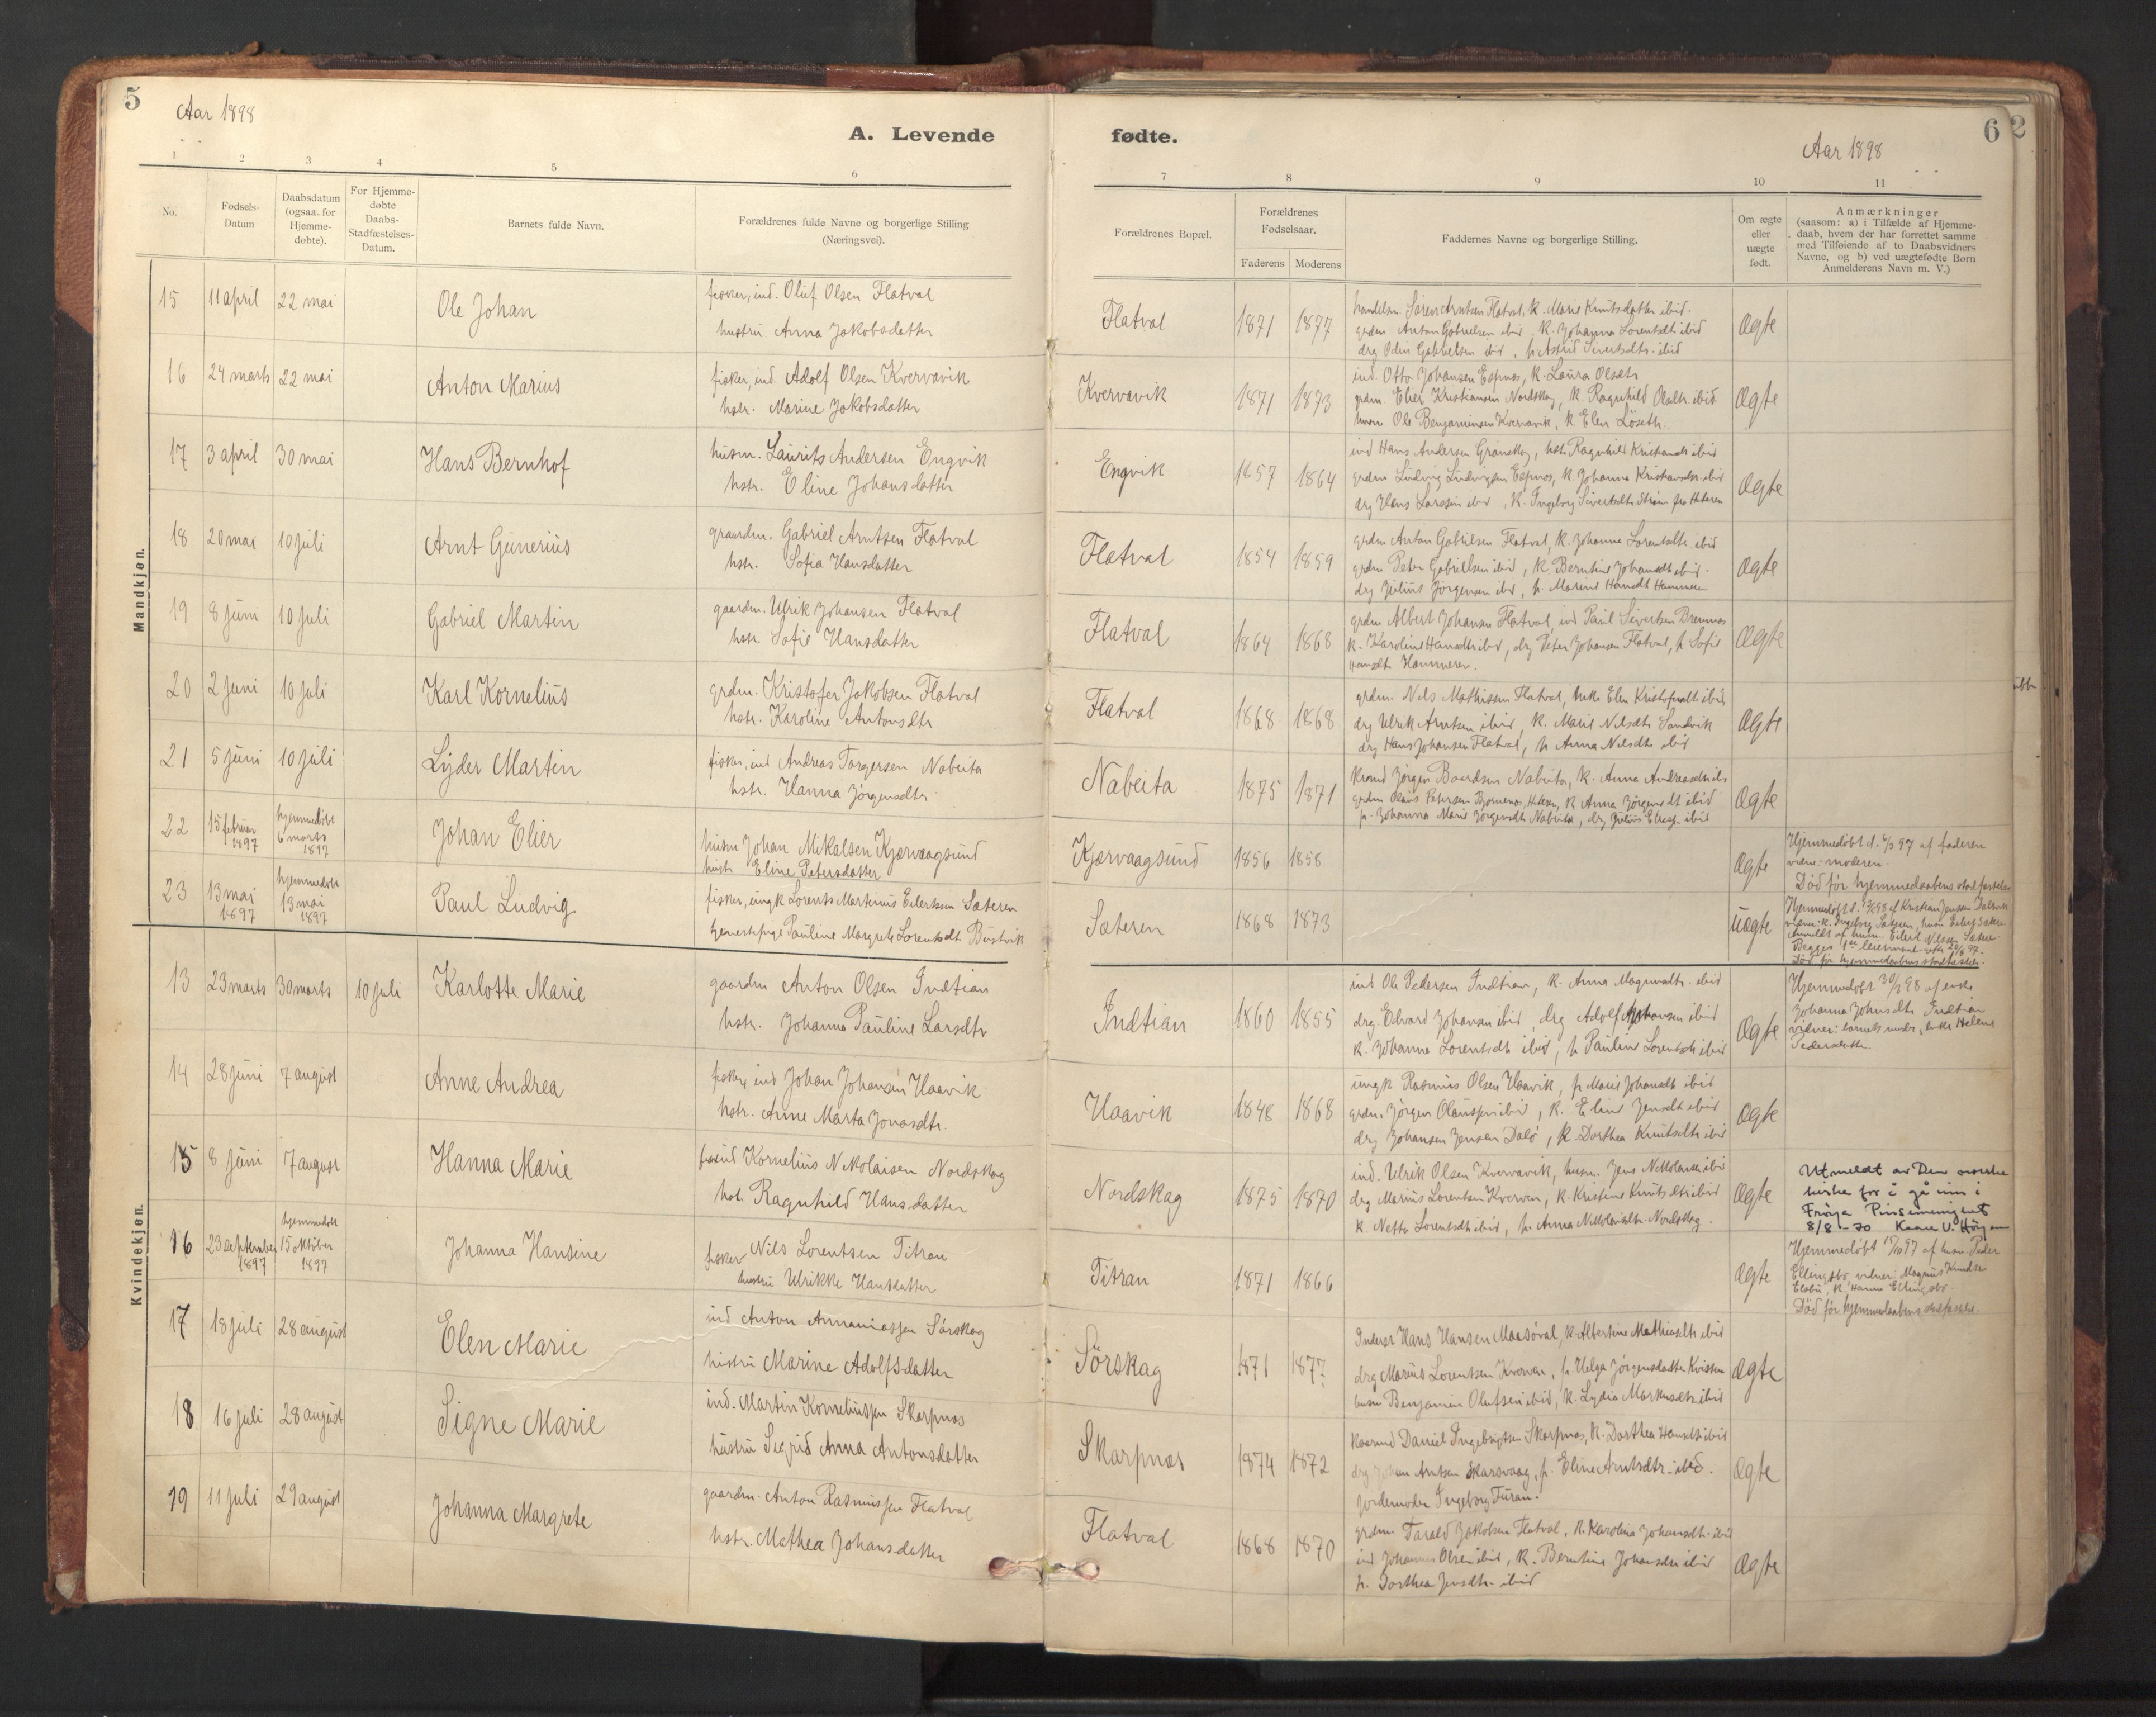 5
Aar 1898
A. Levende
1 2 3 4 5 6
No.
Fødsels-
Datum
Daabsdatum
(ogsaa for
Hjemme-
døbte).
For Hjemme-
døbte
Daabs-
Stadfæstelses-
Datum.
Barnets fulde Navn.
Forældrenes fulde Navne og borgerlige Stilling
(Næringsvei).
Mandkjøn.
15 11 april 22 mai Ole Johan fisker, ind. Oluf Olsen Flatval
hustru Anna Jakobsdatter
16 24 marts 22 mai Anton Marius fisker, ind. Adolf Olsen Kvervavik
hstr. Marine Jakobsdatter
17 3 april 30 mai Hans Bernhof husm. Laurits Andersen Engvik
hstr. Eline Johansdatter
18 20 mai 10 juli Arnt Gunerius graardm. Gabriel Arntsen Flatval
hstr. Sofia Hansdatter
19 8 juni 10 juli Gabriel Martin gaardm. Ulrik Johansen Flatval
hstr. Sofie Hansdatter
20 2 juni 10 juli Karl Kornelius grdm. Kristofer Jakobsen Flatval
hstr. Karoline Antonsdtr
21 5 juni 10 juli Lyder Martin fisker, ind Andreas Torgersen Nabeita
hstr. Hanna Jørgensdtr
22 15 februar 1897 hjemmedöbt 6 marts 1897 Johan Elier husm Johan Mikalsen Kjærvaagsund
hustr Eline Petersdatter
23 13 mai 1897 hjemmedöbt 13 mai 1897 Paul Ludvig fisker, ungk Lorents Martinius Eilertssen Sæteren
tjenestepige Pauline Margrete Lorentsdt Bustvik
Kvindekjøn.
13 23 marts 30 marts 10 juli Karlotte Marie gaardm Anton Olsen Indtian
hstr. Johanna Pauline Larsdtr
14 28 juni 7 august Anne Andrea fisker, ind Johan Johansen Haavik
hstr. Anne Marta Jonasdtr.
15 8 juni 7 august Hanna Marie Kornelius Nikolaisen Nordskag
hst. Ragnhild Hansdatter
16 23 september 1897 hjemmedöbt 15 oktober 1897 Johanna Hansine fisker Nils Lorentsen Titran
hustru Ulrikke Hansdatter
17 18 juli 28 august Elen Marie ind Anton Annaniassen Sörskag
hustru Marine Adolfsdatter
18 16 juli 28 august Signe Marie ind. Martin Korneliussen Skarpnes
hustru Sigrid Anna Antonsdatter
19 11 juli 29 august Johanna Margrete gaardm. Anton Rasmussen Flatval
hstr. Mathea Johansdatter
fødte.
Aar 1898
6
2
7 8 9 10 11
Forældrenes Bopæl.
Forældrenes
Fødselsaar.
Faderens Moderens
Faddernes Navne og borgerlige Stilling.
Om ægte
eller
uægte
født.
Anmærkninger
(saasom: a) i Tilfælde af Hjemme-
daab, hvem der har forrettet samme
med Tilføiende af to Daabsvidners
Navne, og b) ved uægtefødte Børn
Anmelderens Navn m. V.)
Flatval 1871 1877 handelsm Sören Arntsen Flatval, k. Marie Knutsdatter ibid.
grdm Anton Gabrielsen ibid, k. Johanna Lorentsdtr ibid
drg Odin Gabrielsen ibid, p Astrid Sivertsdtr. ibid
Ægte
Kvervavik 1871 1873 ind. Otto Johansen Espnes, k. Laura Olsdtr
grdm. Elier Kristiansen Nordskag, k. Ragnhild Olsdtr. ibid
husm Ole Benjaminsen Kvervavik, k. Elen Löseth.
Ægte
Engvik 1857 1864 ind Hans Andersen Grönskag, hstr. Ragnhild Kristiansdt ibid
grdm Ludvig Ludvigsen Espnes, k. Johanna Kristiansdtr ibid
drg Hans Larssen ibid, k. Ingeborg Sivertsdtr Ström fra Hiteren
Ægte
Flatval 1854 1859 grdm Anton Gabrielsen Flatval, k. Johanna Lorentsdtr. ibid
grdm Peter Gabrielsen ibid, k. Berntine Johansdt ibid.
drg Julius Jörgensen ibid, p. Marine Hansdt Hammeren
Ægte
Flatval 1864 1868 grdm Albert Johansen Flatval, ind Paul Sivertsen Bremnes
k. Karoline Hansdtr ibid, drg Peter Johansen Flatval, p Sofie
Hansdt Hammeren.
Ægte
Flatval 1868 1868 grdm. Nels Mathissen Flatval, enke Elen Kristofersdtr ibid
drg Ulrik Arntsen ibid, k. Marie Nilsdtr Sandvik
drg Hans Johansen Flatval, p Anna Nilsdtr ibid
Ægte
Nabeita 1875 1871 Jörgen Baardsen Nabeita, k. Anna Andreasdtr ibid
grdm Olaus Petersen Bjørnenes, Hiteren, k Anna Jörgensdt ibid
p. Johanna Marie Jörgensdtr Nabeita, drg Julius ibid
Ægte
Kjærvaagsund 1856 1858 Ægte
Hjemmedöbt d. 6/3 97 af faderen
vidne: moderen.
Död för hjemmedaabens stadfæstelse
Sæteren 1868 1873 uægte
Hjemmedöbt d. af Kristian Jensen
Anmeldt af husm. Eilert Nilsen Sæter
Död för hjemmedaabens stadfæstelse.
Indtian 1860 1855 ind Ole Pedersen Indtian, k. Anna Magnusdtr. ibid
drg. Edvard Johansen ibid, drg Adolf Johansen ibid
k. Johanne Lorentsdt ibid, p Pauline Lorentsdt ibid
Ægte
Hjemmedöbt 30/3 98 af enke
Johanna Johnsdtr Indtian
vidner: barnets moder, enke Helene
Pedersdatter.
Haavik 1848 1868 ungk Rasmus Olsen Haavik, p Marie Johansdt ibid
grdm. Jörgen Olaussen ibid, k. Eline Jensdt ibid
drg Johansen Jensen Dalö, k. Dorthea Knutsdtr ibid
Ægte
Nordskag 1875 1870 ind. Ulrik Olsen Kvervavik, husm. Jens Nikolaisen ibid
drg Marius Lorentsen Kverven, k. Kristine Knutsdtr ibid
k. Netta Lorentsdt ibid, p. Anna Nikolaisdtr Nordskag.
Ægte
Utmeldt av Den norske
kirke for å gå inn i
Frøya Pinsemenighet
8/8-70 Kaare V.
Titran 1871 1866 Ægte
Hjemmedöbt 15/10 97 af husm. Peder
Ellingsbo, vidner: Magnus Knudsen
k. Hanna Ellingsbo.
Död för hjemmedaabens stadfæstelse.
Sörskag 1871 1877 Inderst Hans Hansen Maasöval, k. Albertine Mathiasdtr ibid
drg Marius Lorentsen Kverven, p. Helga Jörgensdatter Kvisten
husm Benjamin Olufsen ibid, k. Lydia Markusdtr ibid
Ægte
Skarpnes 1874 1872 Daniel Ingebrigtsen Skarpnes, k. Dorthea Hansdt ibid
drg Johan Arntsen Skarsvaag, p. Eline Arntsdtr. ibid.
jordemoder Ingeborg Furan.
Ægte
Flatval 1868 1870 grdm. Tarald Jakobsen Flatval, k. Karolina Johansdtr. ibid
ind Johannes Olsen ibid, k. Berntine Johansdtr ibid
p. Dorthea Jensdtr. ibid
Ægte